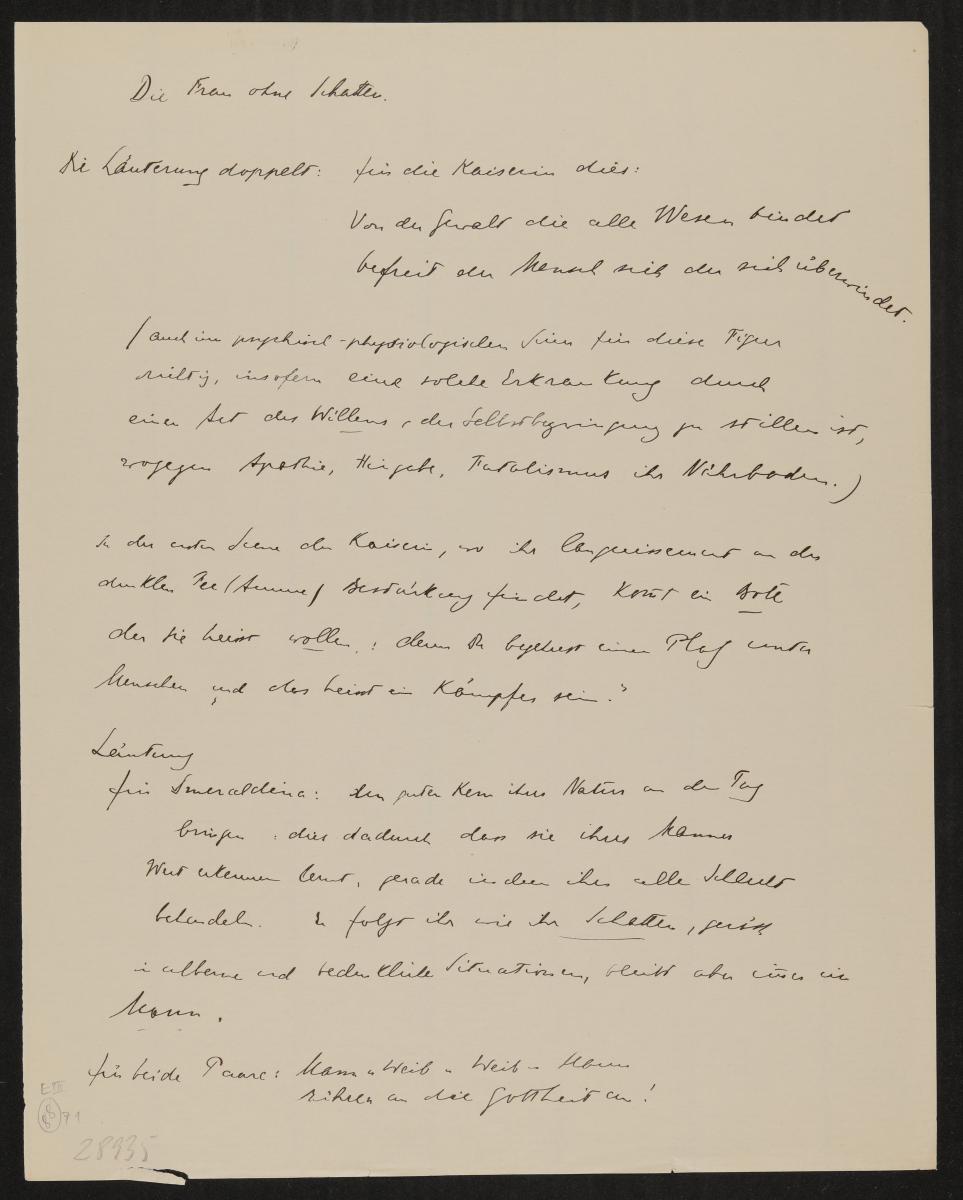 Die Frau ohne Schatten.
Die Läuterung doppelt: für die Kaiserin dies:
Von der Gewalt die alle Wesen bindet
befreit der Mensch sich der sich überwindet.
(auch im psychisch-physiologischen Sinn für diese Figur
richtig, insofern eine solche Erkrankung durch
einen Act des Willens, der Selbstbezwingung zu stillen ist,
wogegen Apathie, Hingabe, Fatalismus ihr Nährboden.)
In der ersten Scene der Kaiserin, wo ihr languissement an der
dunklen Fee (Amme) Bestärkung findet, komt ein Bote
der sie heisst wollen: denn Du begehrest einen Platz unter
Menschen und das heisst ein Kämpfer sein."
Läuterung
für Smeraldina: den guten Kern ihrer Natur an den Tag
bringen: dies dadurch dass sie ihres Mannes
Wert erkennen lernt, gerade indem ihn alle schlecht
behandeln. Er folgt ihr wie ihr Schatten, gerät
in alberne und bedenkliche Situationen, bleibt aber immer ein
Mann.
für beide Paare: Mann u Weib u Weib u Mann
rühren an die Gottheit an!
E III
88 71
28935